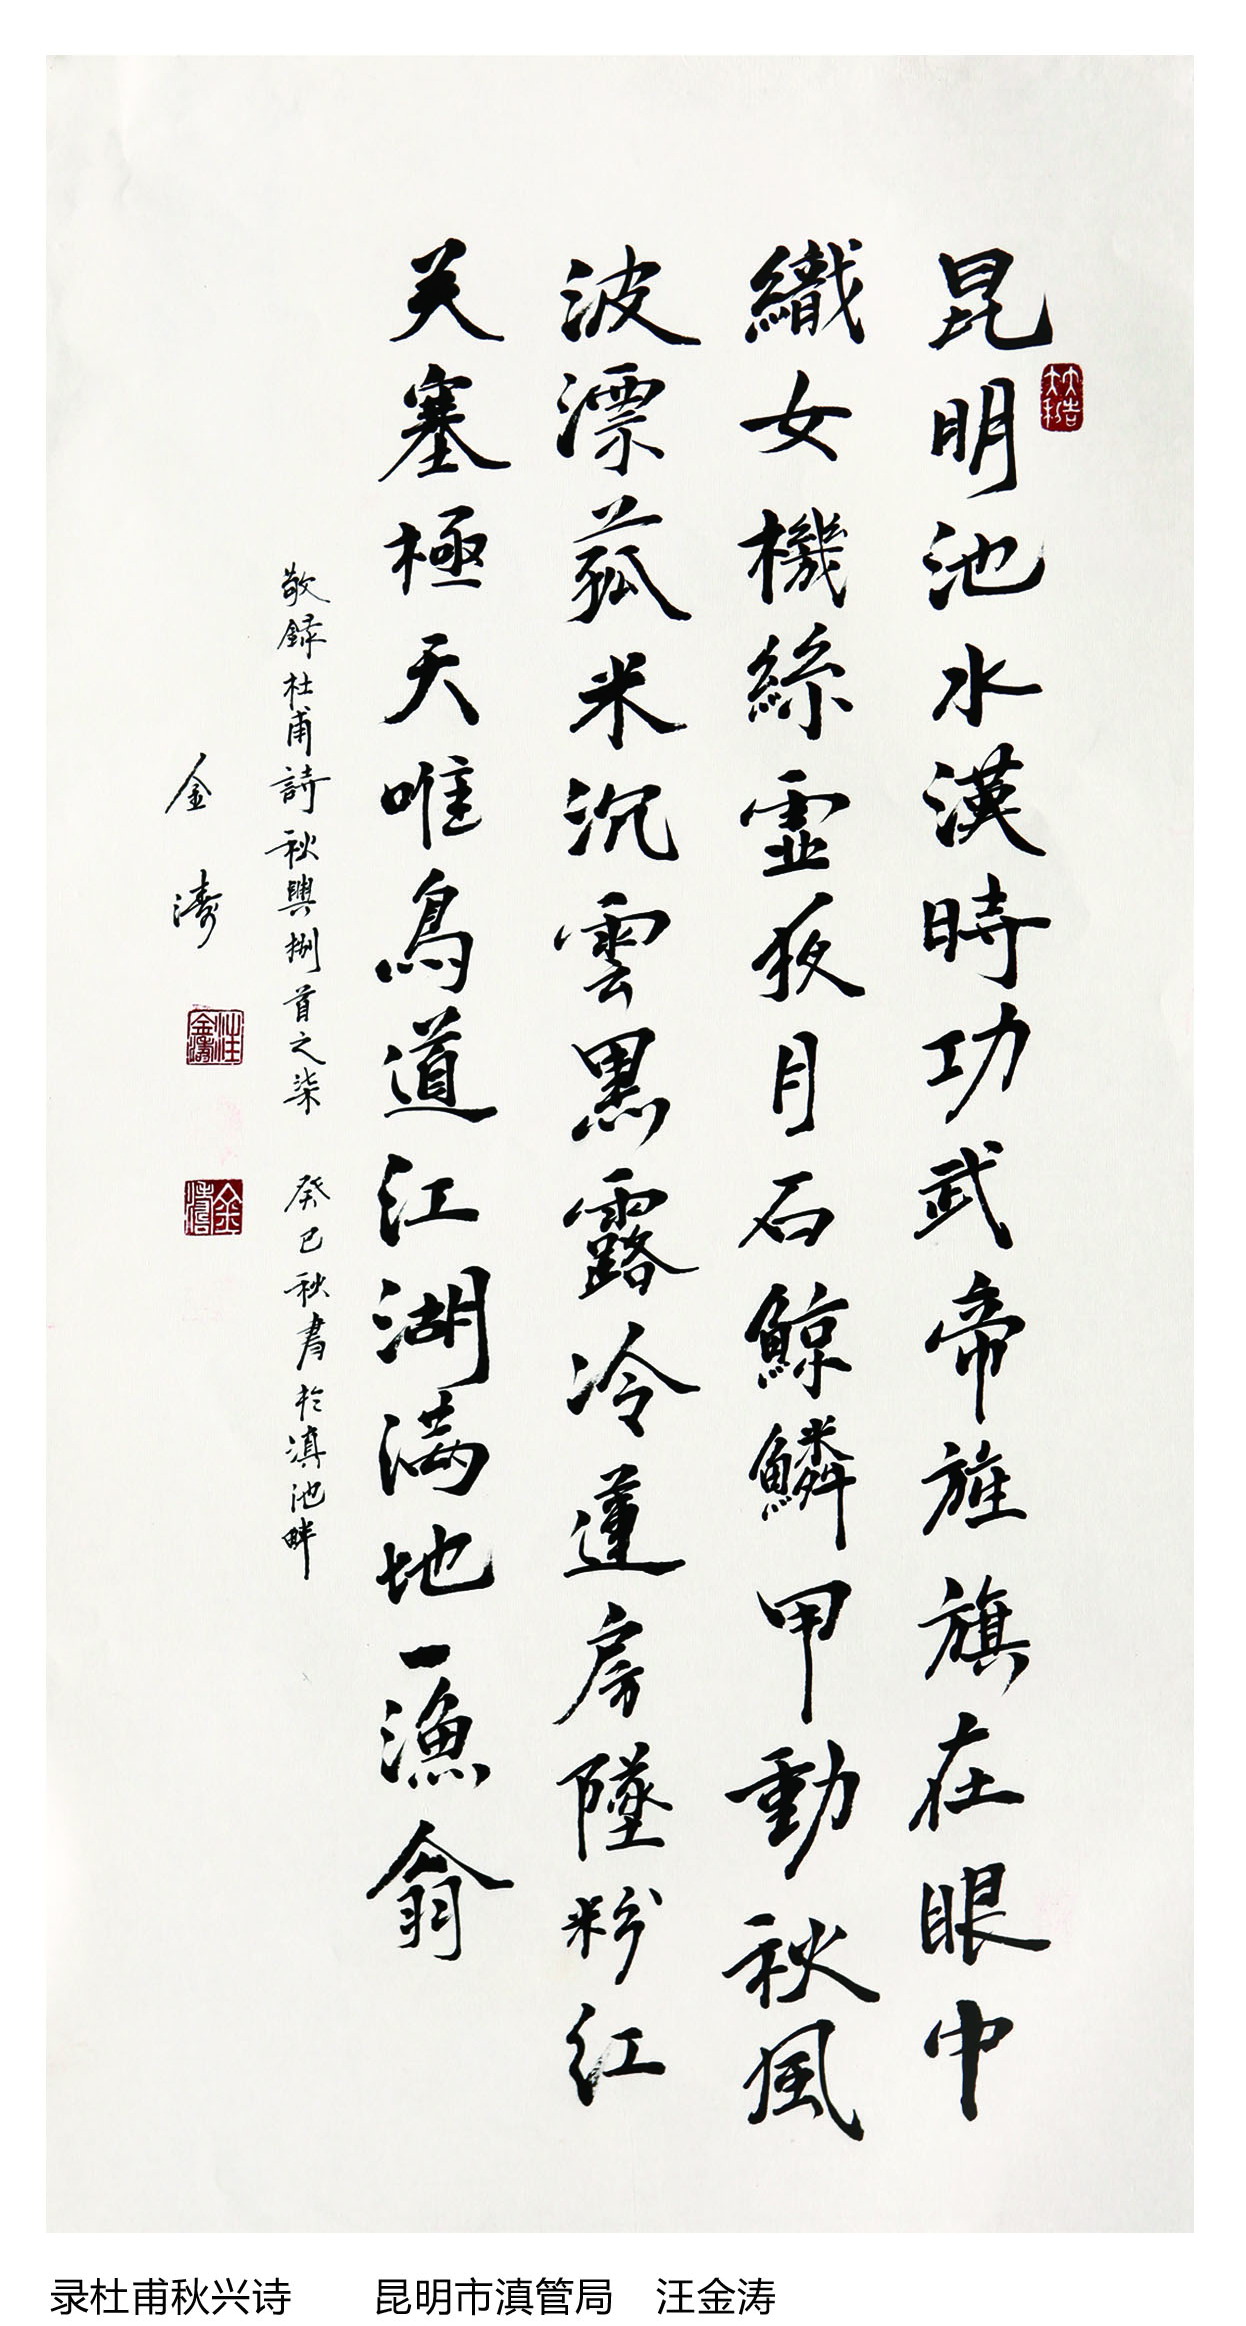 昆明池水漢時功武帝旌旗在眼中
織女機絲虛夜月石鯨鱗甲動秋風
波漂菰米沉雲黑露冷蓮房墜粉紅
关塞極天唯鳥道江湖满地一漁翁
敬録杜甫詩秋興捌首之柒 癸巳秋書於滇池畔
金濤
汪金濤
金濤
录杜甫秋兴诗 昆明市滇管局 汪金涛